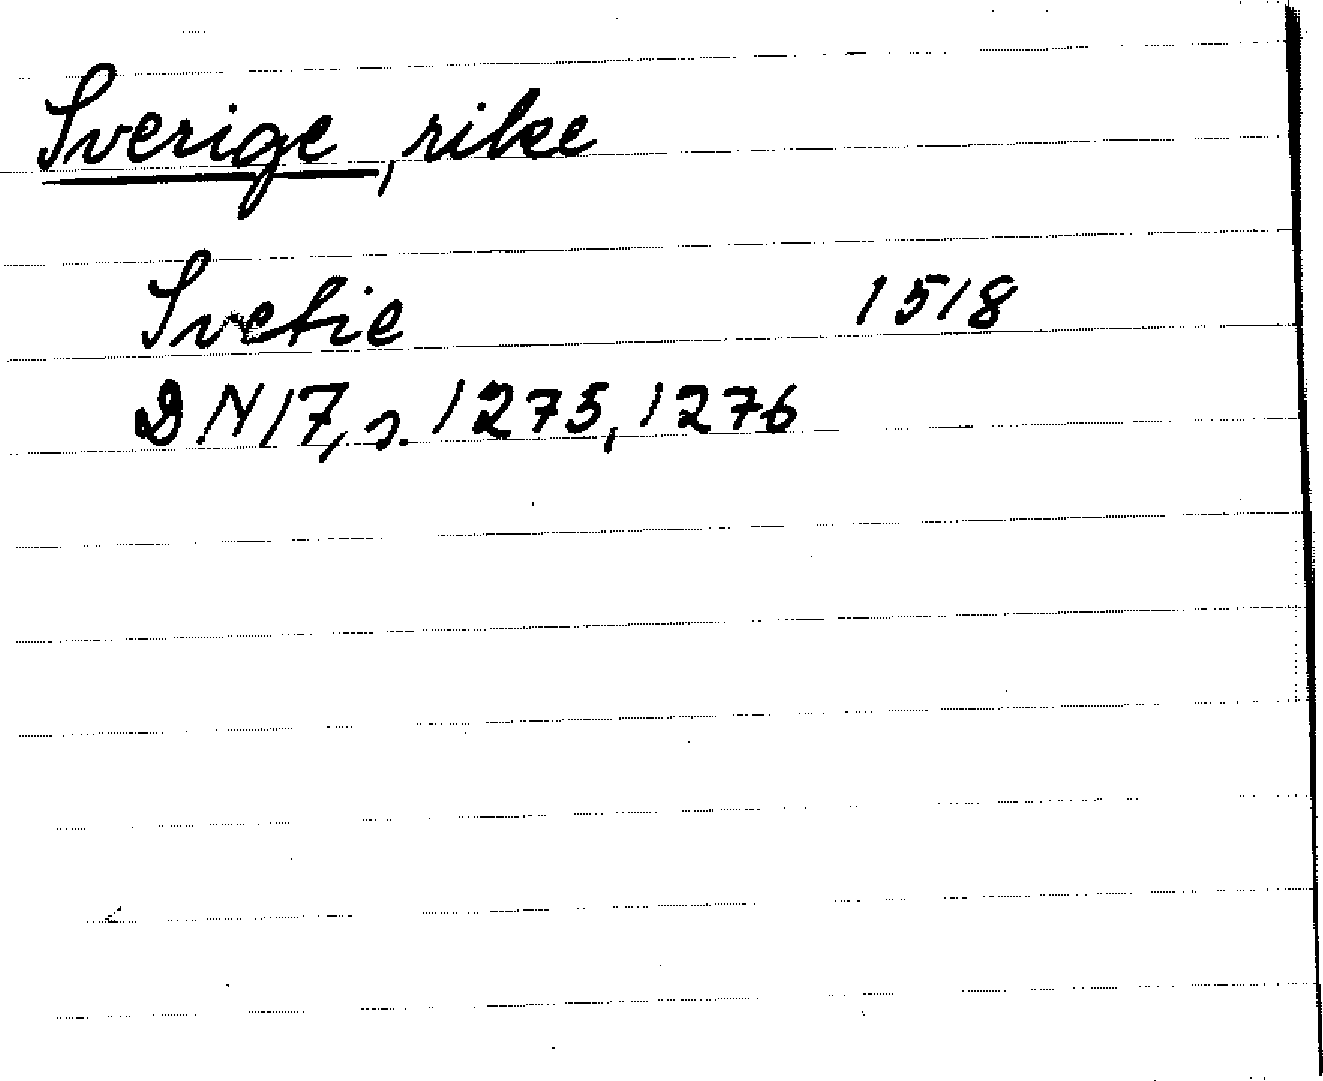 Sverige, rike
Svetie 1518
DN17, s. 1275, 1276